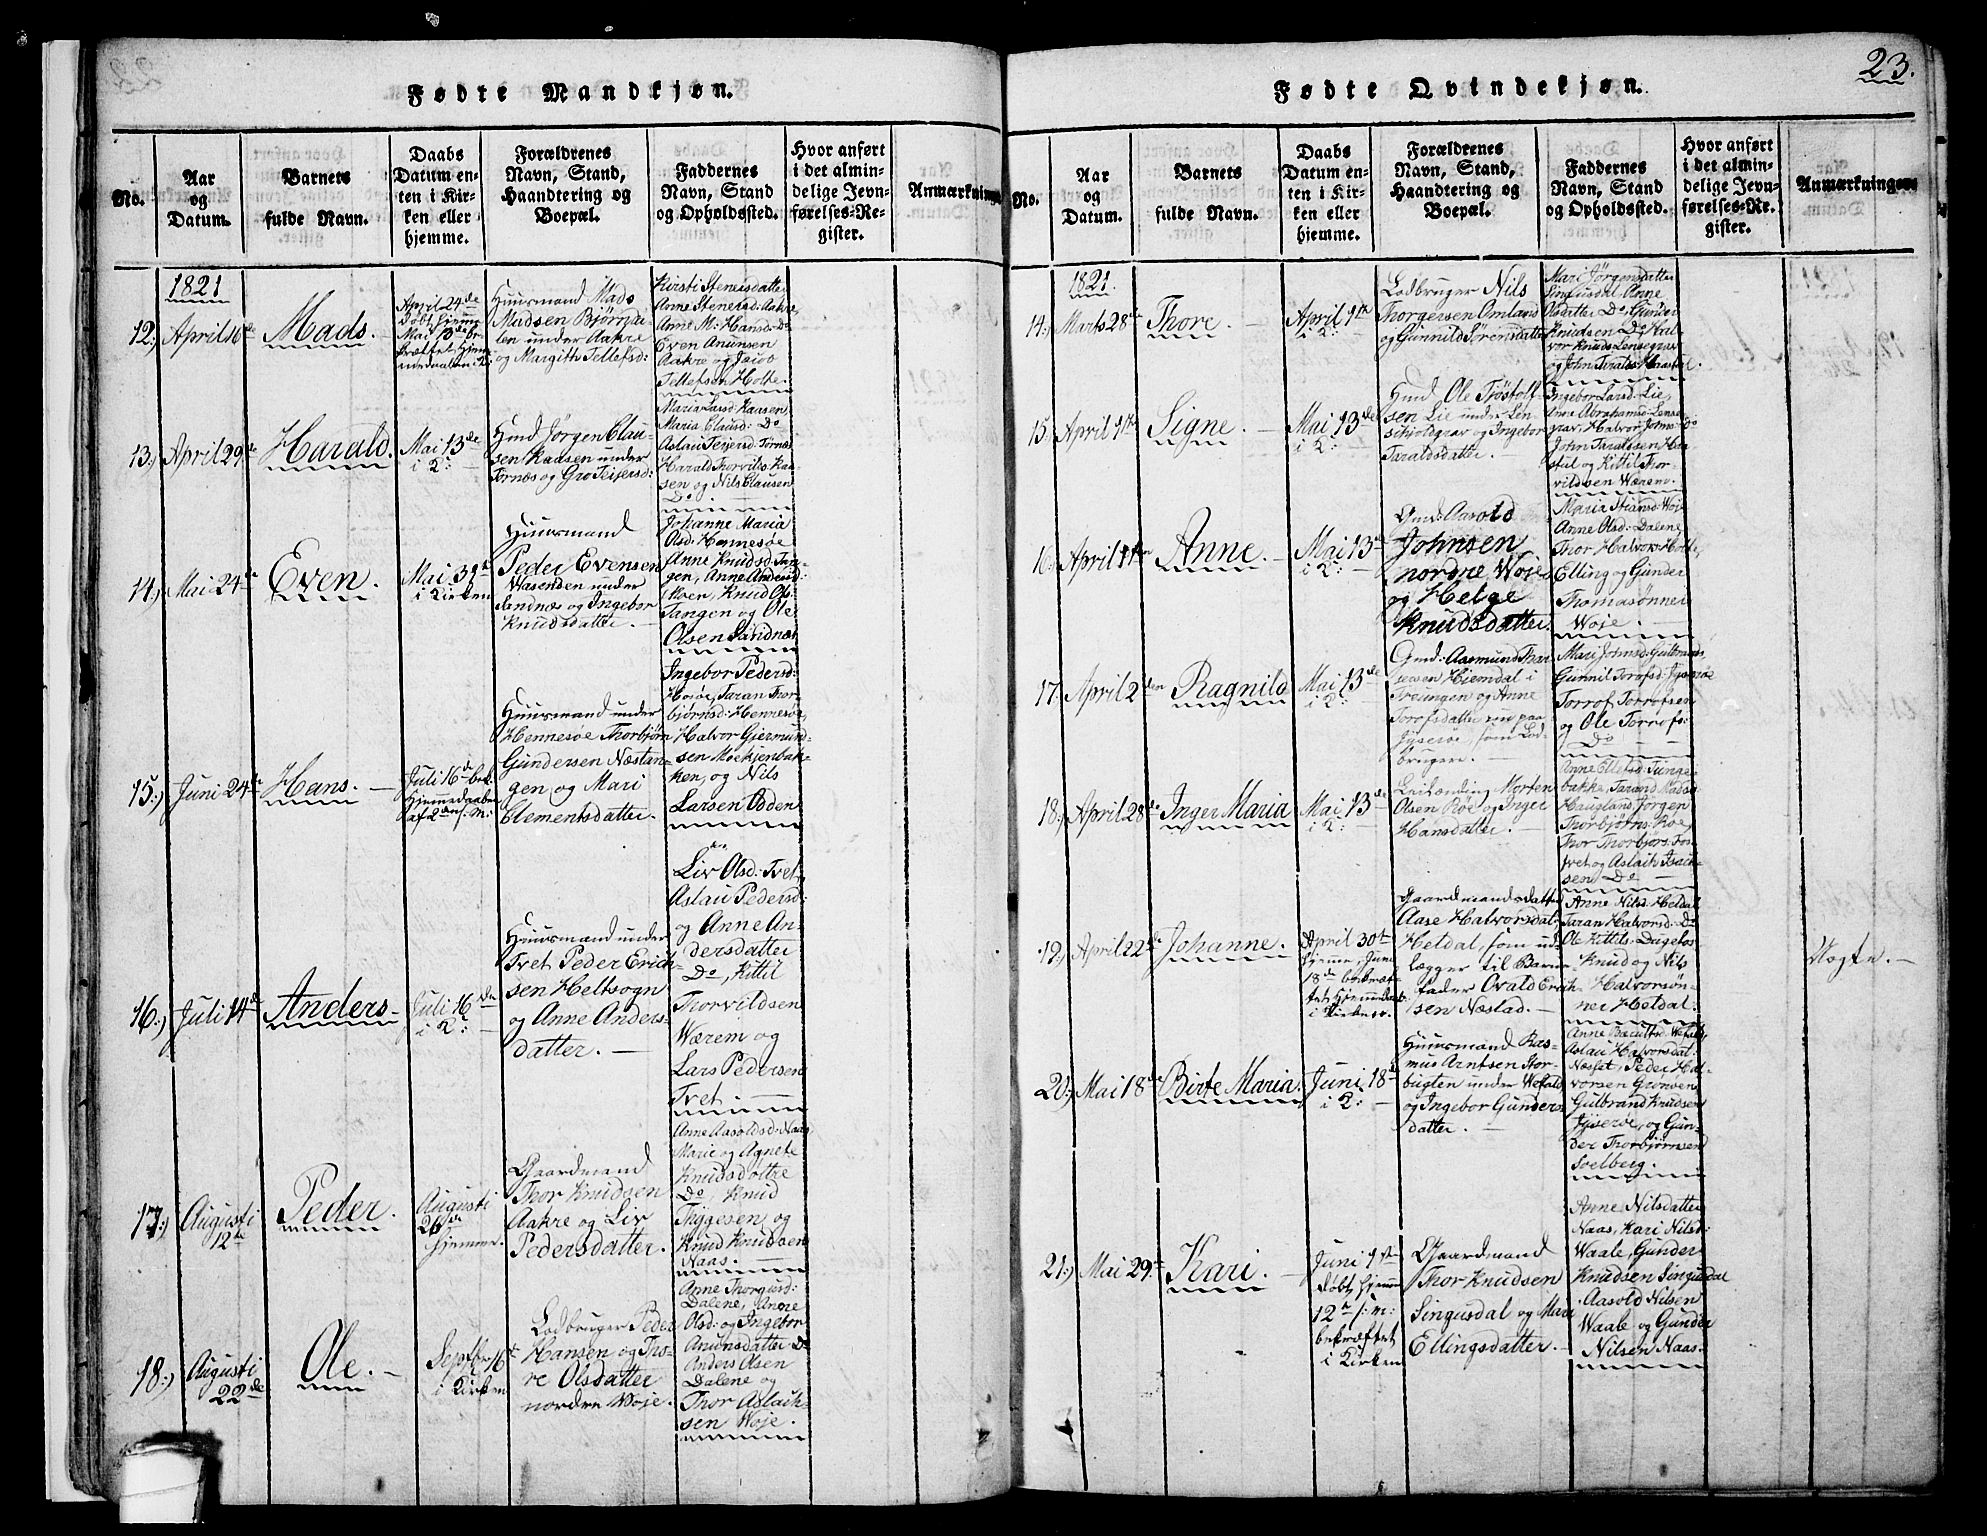 23.
Fødte Mandkjøn.
No.
Aar
og
Datum.
Barnets
fulde Navn.
Daabs
Datum en-
ten i Kir-
ken eller
hjemme.
Forældrenes
Navn, Stand,
Haandtering og
Boepæl.
Faddernes
Navn, Stand
og Opholdssted.
Hvor anført
i det almin-
delige Jevn-
førelses-Re-
gister.
Anmærkninge
1821
12.) April 10de
Mads.
April 24de
Døbt hjemme
Mai 13de be-
kræftet
Huusmand Mads
Madsen Bjørnda-
len under Aakre
og Margith Tellefsd:
Kirsti Stenersdatter
Anne Stenersd: Aakre
Anne M: Hansd: Do
Even Anunsen
Aakre og Jacob
Tellefsen Holte.
13.) April 29de
Harald.
Mai 13de
i K:
Hmd Jørgen Clau-
sen Kaasen under
Tornæs og Gro Teijersd:
Maria Larsd: Kaasen,
Maria Clausd: Do
Aslau Teijersd: Tornæs
Harald Thorvilds: Kaa-
sen og Nils Clausen
Do.
14.) Mai 24de
Even.
Mai 31te
i Kirken
Huusmand
Peder Evensen
Wasenden under
Sandnæs og Ingebor
Knudsdatter.
Johanne Maria
Olsd: Hennesøe
Anne Knudsd: Tan-
gen, Anne Andersd:
Moen, Knud Ols:
Tangen og Ole
Olsen Sandnæs
15.) Juni 24de
Hans.
Juli 16de bek:
Hjemmedaaben
Huusmand under
Hennesøe Thorbjørn
Gundersen Næstan-
gen og Mari
Clementsdatter.
Ingebor Pedersd:
Hojøe, Taran Thor-
bjørnsd: Hennesøe,
Halvor Giermund-
sen Moekjenbak-
ken, og Nils
Larsen Odden
16.) Juli 14de
Anders
Juli 16de
i K:
Huusmand under
Tvet Peder Erich-
sen Heltsogn
og Anne Anders-
datter.
Liv Olsd: Tvet,
Aslau Pedersd:
og Anne An-
dersdatter
Do, Kittil
Thorvildsen
Wærem og
Lars Pedersen
Tvet.
17.) Augusti
12te
Peder.
Augusti
26de
hjemme.
Gaardmand
Thor Knudsen
Aakre og Liv
Pedersdatter.
Anne Aasoldsd: Naas
Marie og Agnete
Knudsdøttre
Do, Knud
Thygesen, og
Knud Knudsen
Naas.
18.) Augusti
22de
Ole.
Septbr 16de
i Kirken
Lodbruger Peder
Hansen og Tho-
re Olsdatter
nordre Woje.
Anne Thorgiusd:
Dalene, Anne
Olsd: og Ingebor
Anunsdatter Do
Anders Olsen
Dalene og
Thor Aslach-
sen Woje.
Fødte Qvindekjøn.
No.
Aar
og
Datum.
Barnets
fulde Navn.
Daabs
Datum en-
ten i Kir-
ken eller
hjemme.
Forældrenes
Navn, Stand,
Haandtering og
Boepæl.
Faddernes
Navn, Stand
og Opholdssted.
Hvor anført
i det almin-
delige Jevn-
førelses-Re-
gister.
Anmærkninger.
1821.
14.) Marts 28de
Thore.
April 1ste
i K:
Lodbruger Nils
Thorgersen Omland
og Gunnild Sørensdatter
Mari Jørgensdatter
Singusdal, Anne
Olsdatter Do, Gunder
Knudsen Do Hal-
vor Knuds: Lensegrav
og John Taralds: Haastul.
15. April 1ste
Signe.
Mai 13de
i K:
Hmd Ole Tjøstolf-
sen Lie under Len-
schioldgrav og Ingebor
Taraldsdatter.
Ingebor Larsd: Lie,
Anne Abrahamsd: Lense-
grav, Halvor Johns: Do
John Taraldsen Haa-
stul og Kittil Thor-
vildsen Wærem.
16. April
Anne.
Mai 13de
i K:
Gmd: Aasold
Johnsen
nordre Woje
og Helge
Knudsdatter.
Maria Stiansd: Woje
Anne Olsd: Dalene
Thor Halvors: Holte,
Elling og Gunder
Thomasønner
Woje.
17. April 2den
Ragnild
Mai 13de
i K:
Gmd: Aasmund Thar-
jersen Hiemdal i
Treungen og Anne
Torofsdatter nu paa
Jyserøe, som Lod-
brugere.
Mari Johnsd: Gulbrands,
Gunnil Torofsd: Jyserøe
Torrof Torrofsen
og Ole Torrofs:
Do
18. April 28de
Inger Maria
Mai 13de
i K:
Leilænding Morten
Olsen Røe og Inger
Hansdatter.
Anne Ellefsd: Tunge-
bakke, Tarand Mads:
Haugland, Jørgen
Thorbjørns: Røe,
Thor Thorbjørs: Fos-
tvet og Aslach Isach-
sen Do
19.) April 22de
Johanne.
April 30te
hjemme, Juni
18de bekræf-
tet
i Kirken.
Gaardmandsdatter
Aase Halvorsdat:
Heldal, som ud-
lægger til Barne-
fader Ovald Erich-
sen Næstad.
Anne Nils: Heldal
Taran Halvorsd: Do
Ole Kittils: Dugebos
Knud og Nils
Halvorsøn-
ner Heldal.
Uægte.
20.) Mai 18de
Birte Maria.
Juni 18de
i K:
Huusmand Ras-
mus Arntsen Stor-
bugten under Wefald
og Ingebor Gunders-
datter.
Aslau Halvorsdat:
Næsset, Peder Hal-
vorsen Grønøen,
Gulbrand Knudsen
Jyserøe, og Gun-
der Thorbjørnsen
Soelberg.
21.) Mai 29de
Kari.
Juni 1ste
døbt hjemme
12te s: m:
bekræftet
i Kirken
Gaardmand
Thor Knudsen
Singusdal og Mari
Ellingsdatter.
Anne Nilsdatter
Naas, Kari Nilsd:
Waale, Gunder
Knudsen Singusdal
Aasold Nilsen
Waale og Gunder
Nilsen Naas.